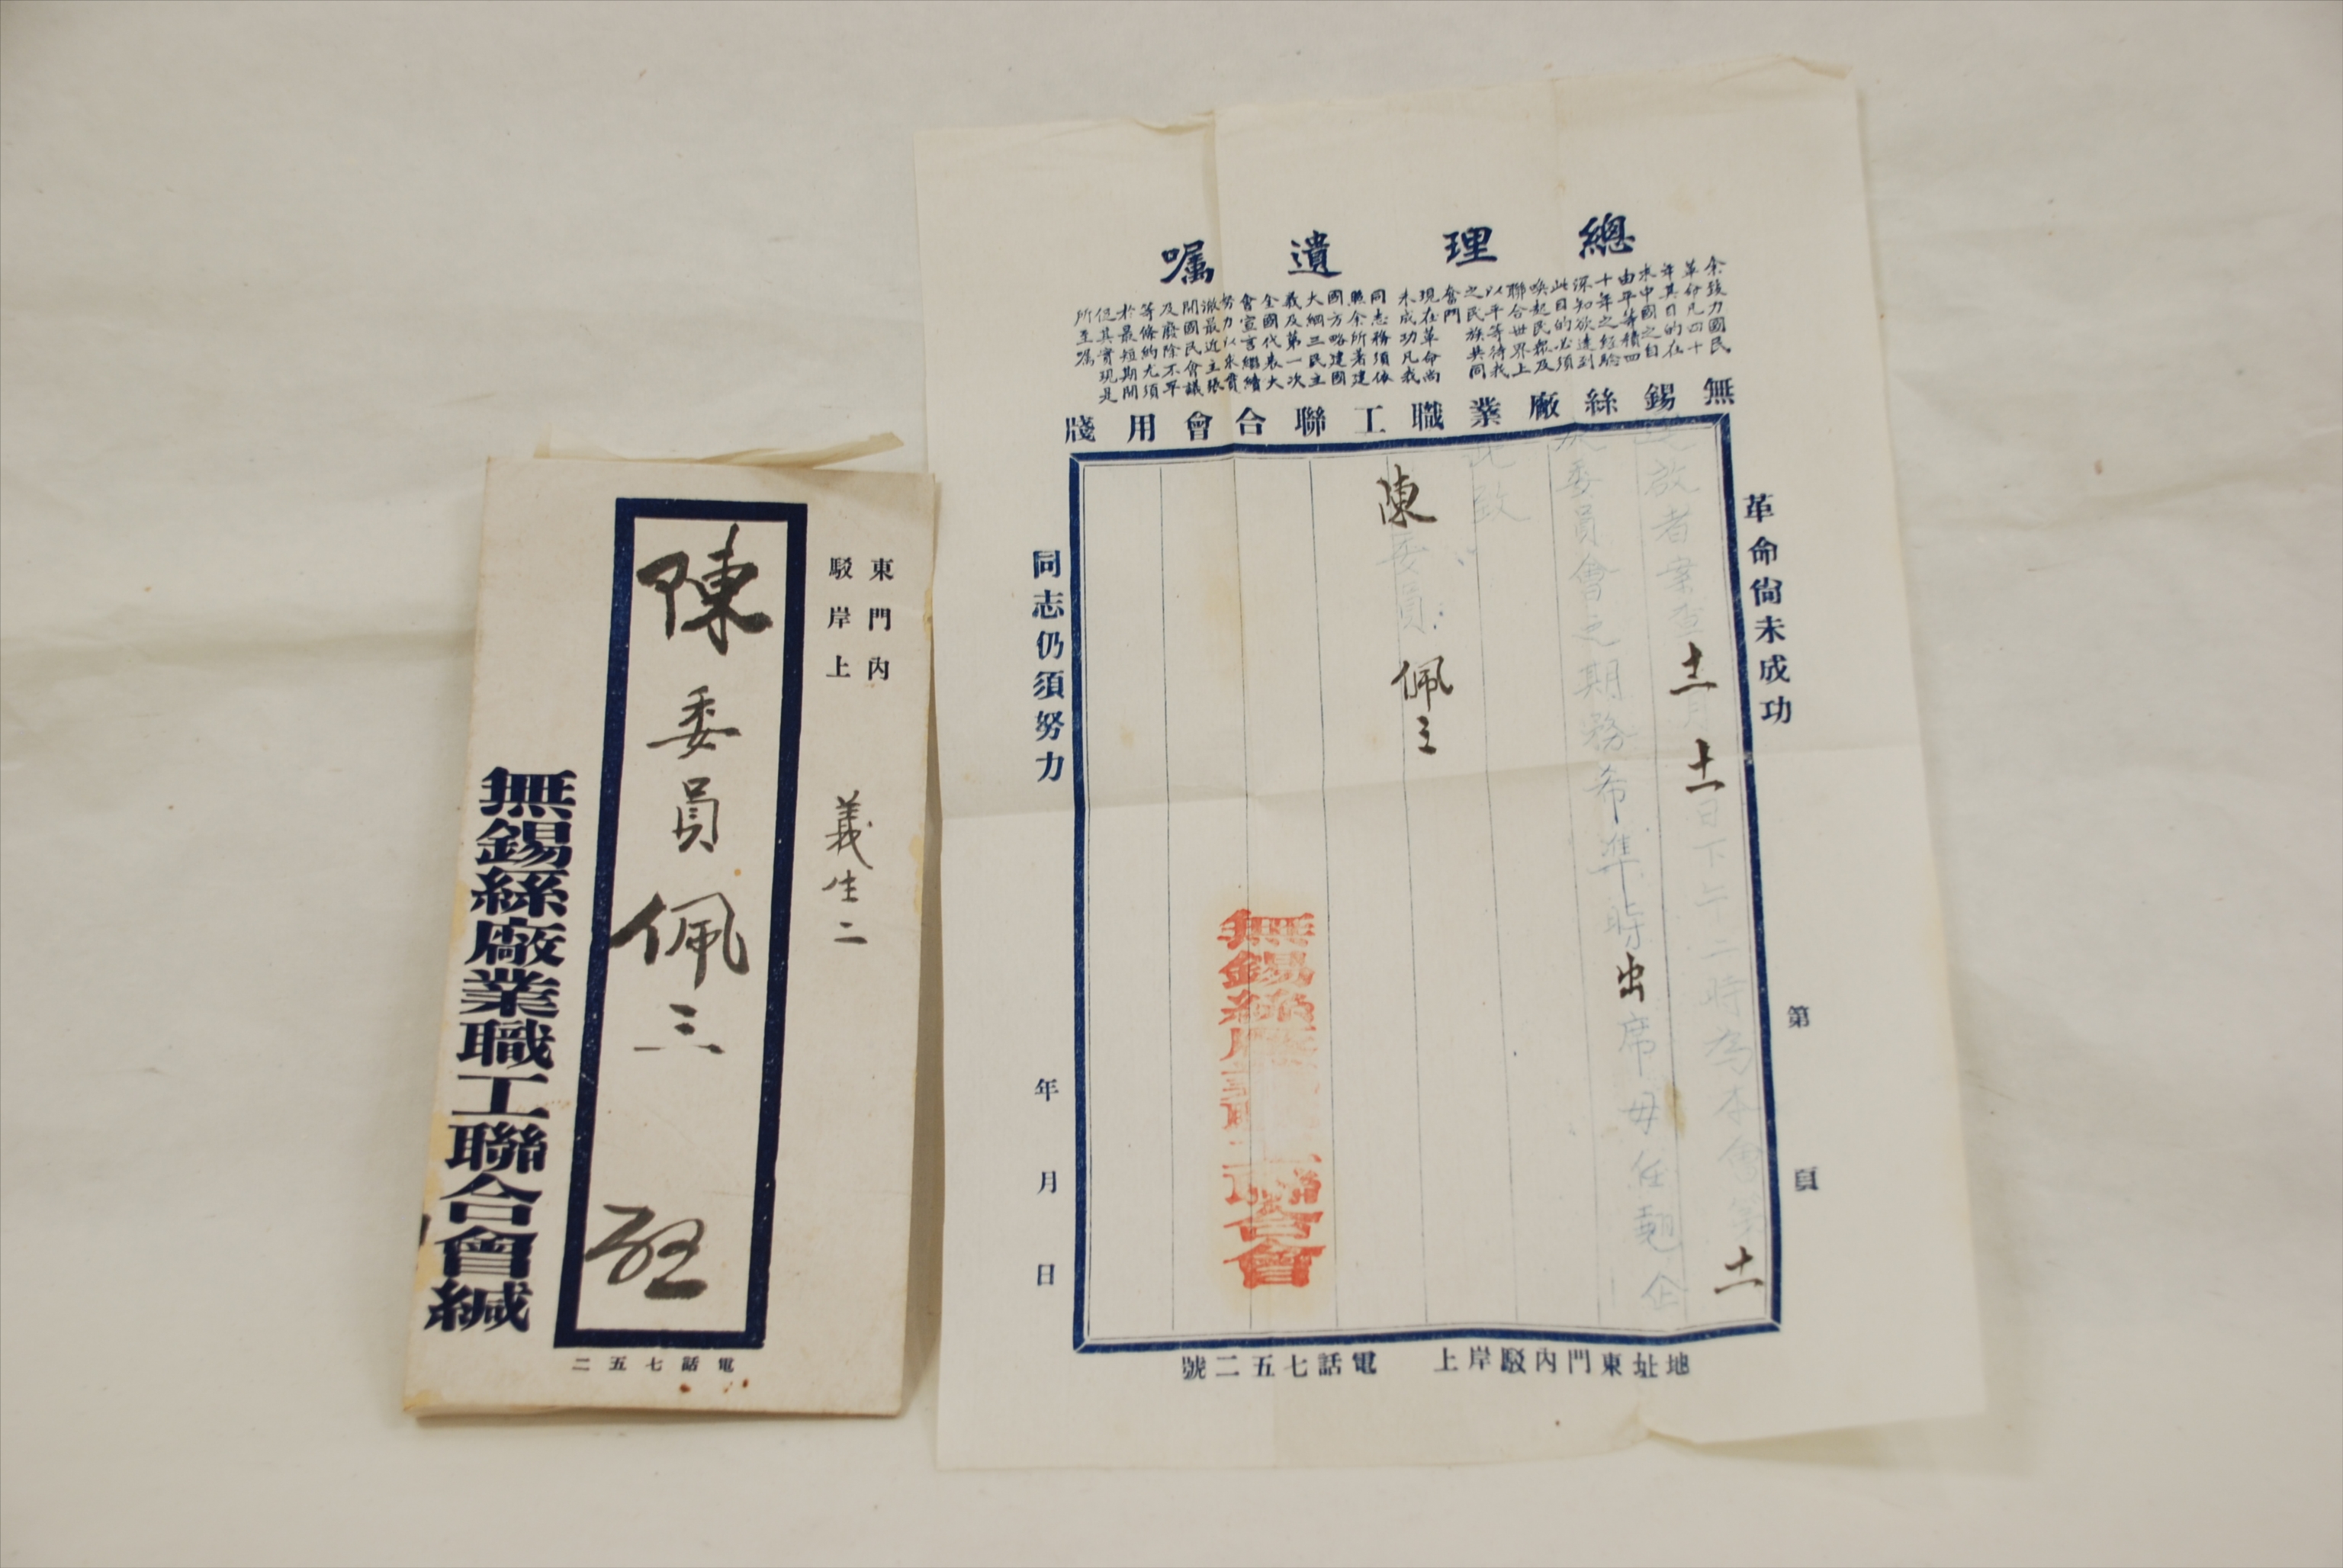 東門內
駁岸上
義生二
陳委員佩三啟
無錫絲廠業職工聯合會緘
電話七五二
總理遺囑
余致力國民
革命凡四十
年其目的在
求中國之自
由平等積四
十年之經驗
深知欲達到
此目的必須
喚起民眾及
聯合世界上
以平等待我
之民族共同
奮鬥
現在革命尚
未成功凡我
同志務須依
照余所著建
國方略建國
大綱三民主
義及第一次
全國代表大
會宣言繼續
努力以求貫
澈最近主張
開國民會議
及廢除不平
等條約尤須
於最短期間
促其實現是
所至囑
無錫絲廠業職工聯合會用牋
革命尙未成功
第 頁
啟者案查十一月十一日下午二時為本會第十一
次委員會之期務希準時出席毋任翹企
此致
陳委員佩三
無錫絲廠業職工聯合會
同志仍須努力
年 月 日
地址東門內駁岸上 電話七五二號